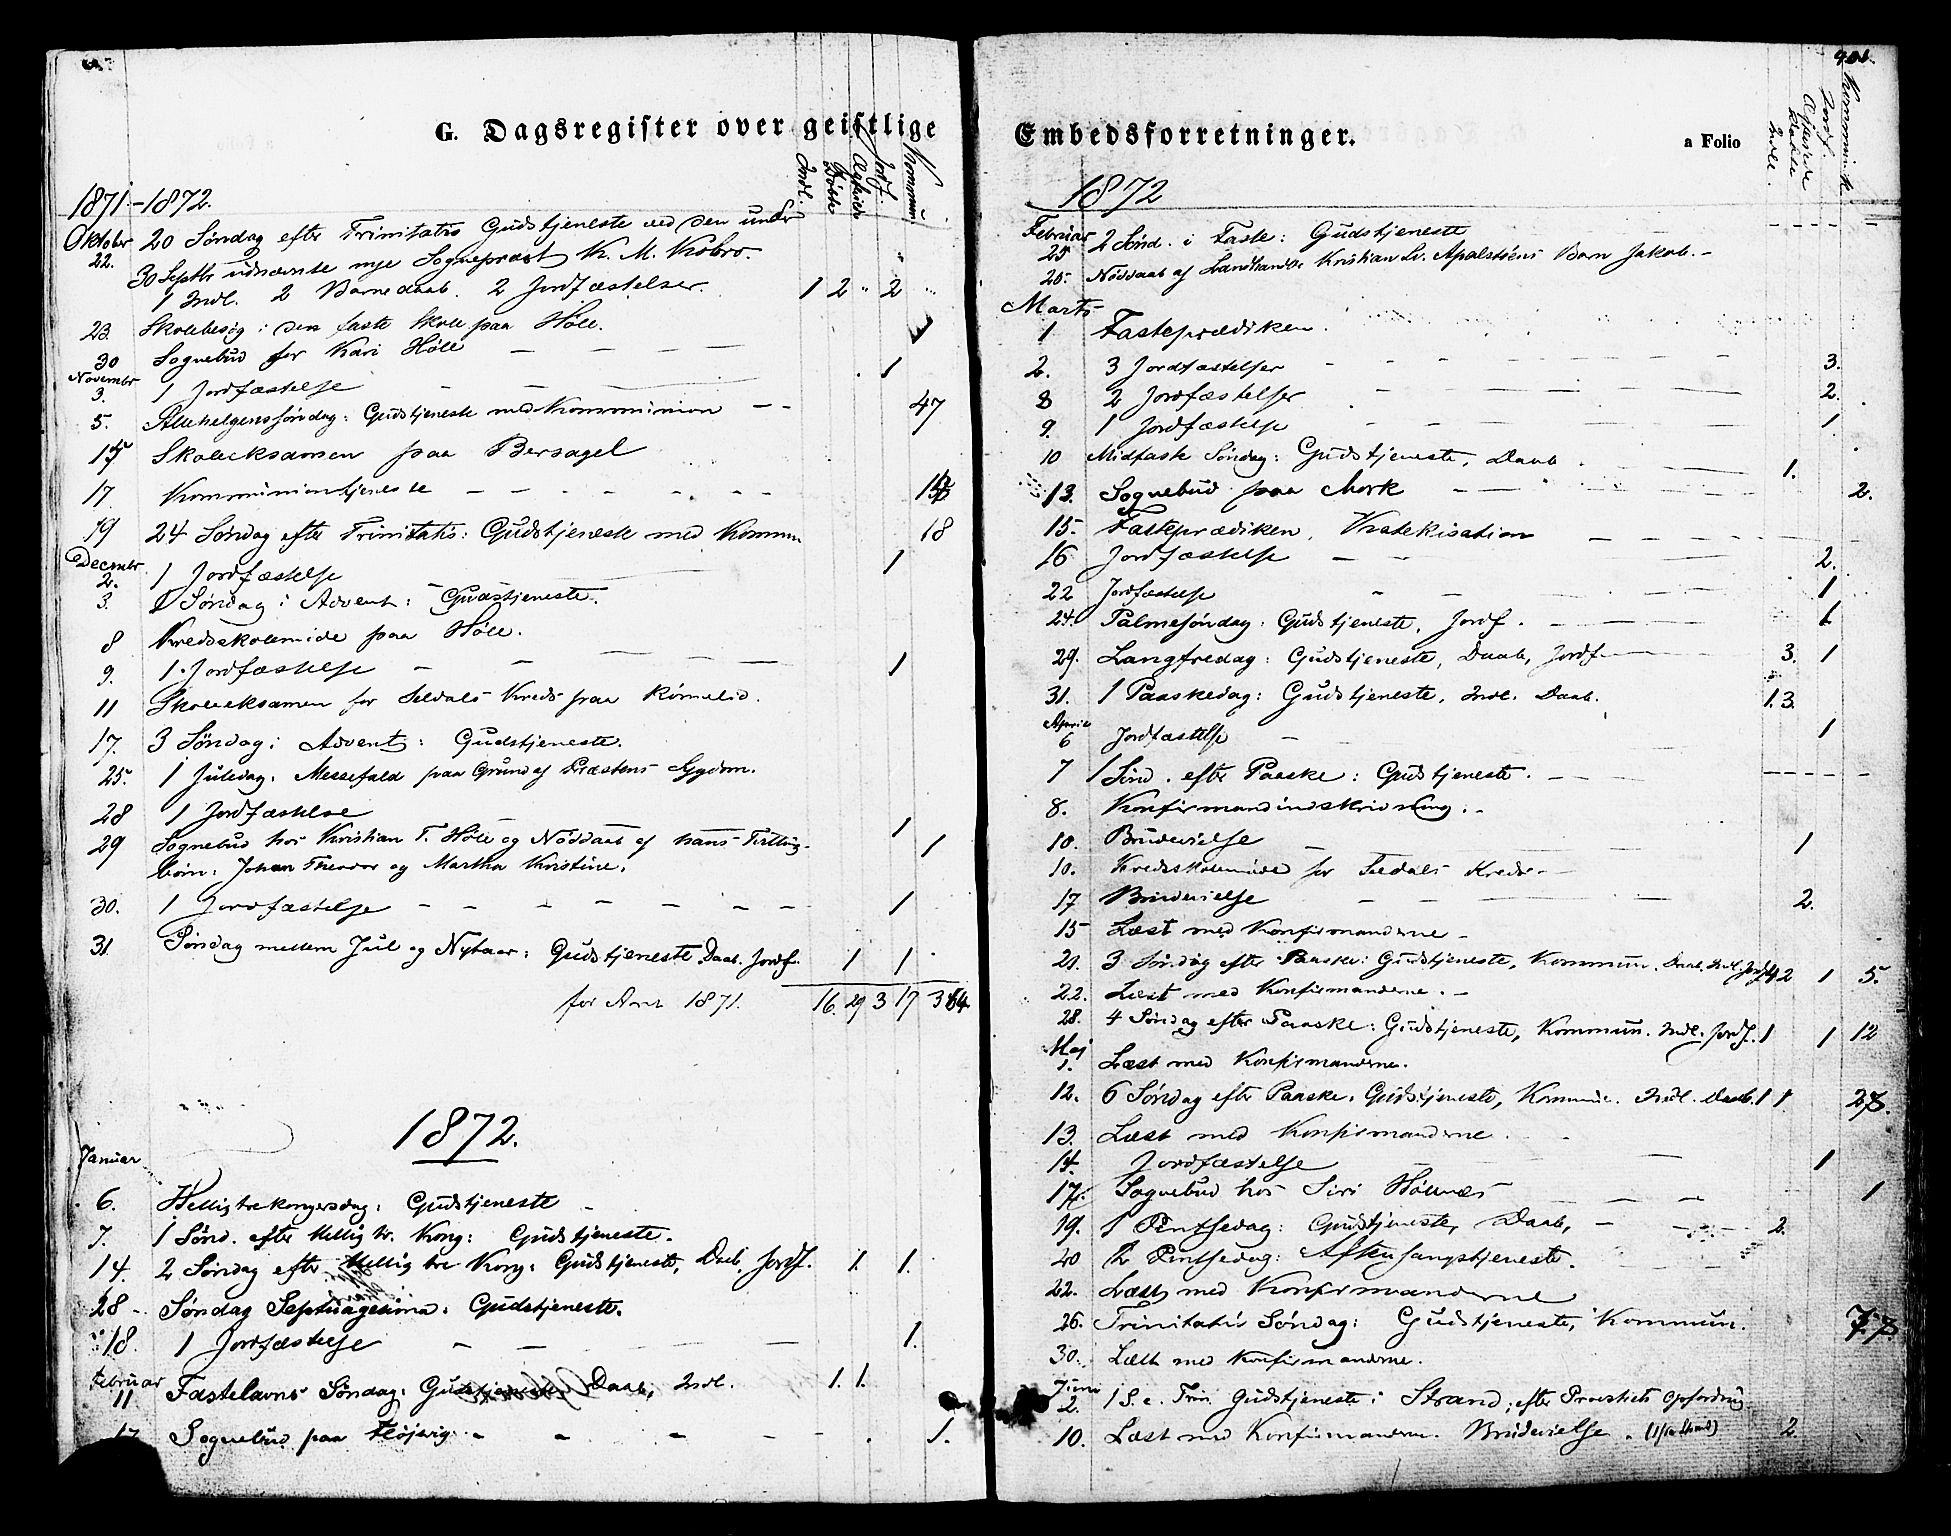 G. Dagsregister over geistlige
Indl. Døbte Jordf. Kommun
1871.-1872.
Oktober 22. 20 Søndag efter Trinitatis Gudstjeneste ved den under
30 Septbr udnævnte nye Sognepræst K. M. Kobro.
1 Indl. 2 Barnedaab. 2 Jordfæstelser. 1 2 " 2 "
23. Skolebesøg i den faste Skole paa Höle.
30 Sognebud for Kari Höle 1
Novembr 3. 1 Jordfæstelse 1
5. Allehelgenssøndag: Gudstjeneste med Kommunion 47
15 Skoleeksamen paa Bersagel
17. Kommuniontjeneste
19 24 Søndag efter Trinitatis: Gudstjeneste med Kommun 18
Decembr 2. 1 Jordfæstelse 1
3. 1 Søndag i Advent: Gudstjeneste.
8 Kredsskolemøde paa Höle.
9. 1 Jordfæstelse 1
11 Skoleeksamen for Seldals Kreds paa Kömelid.
17. 3 Søndag i Advent: Gudstjeneste.
25. 1 Juledag: Messefald paa Grund af Præstens Sygdom.
28 1 Jordfæstelse 1
29 Sognebud hos Kristian T. Höle og Nöddaab af hans Tvilling- 1
börn: Johan Theodor og Martha Kristine.
30. 1 Jordfæstelse 1
31. Søndag mellem Jul og Nytaar: Gudstjeneste Daab. Jordf. 1 1
for Aaret 1871. 16. 29 3 17
1872.
Januar
6. Helligtrekongersdag: Gudstjeneste
7. 1 Sønd. efter Hellig tr. Kong: Gudstjeneste.
14. 2 Søndag efter Hellig tre Kong: Gudstjeneste, Daab, Jordf. 1. 1.
28 Søndag Septuagesima: Gudstjeneste.
18. 1 Jordfæstelse 1.
Februar 11 Fastelavns Søndag: Gudstjeneste Daab, Indl. 1. 1.
17 Sognebud paa 1.
Embedsforretninger.
a Folio
Indl. Jordf. Kommunik.
1872
Februar 25 2 Sønd. i Faste: Gudstjeneste
25. Nöddaab af Landhandl. Kristian Sv. Apalstöens Barn Jakob.
Marts
1 Fasteprædiken.
2. 3 Jordfæstelser 3.
8 2 Jordfæstelser 2.
9. 1 Jordfæstelse 1
10 Midfaste Søndag: Gudstjeneste, Daab 1.
13. Sognebud paa Mork 2.
15. Fasteprædiken, Katekisation
16 Jordfæstelse 2.
22 Jordfæstelse 1
24. Palmesøndag: Gudstjeneste, Jordf. 1
29. Langfredag: Gudstjeneste, Daab, Jordf. 3. 1
31. 1 Paaskedag: Gudstjeneste, Indl. Daab. 1. 3.
April 6 Jordfæstelse 1
7 1 Sønd. efter Paaske: Gudstjeneste.
8. Konfirmandindskrivning.
10. Brudevielse 1
10. Kredsskolemøde for Seldals Kreds
17 Brudevielse 2.
15 Læst med Konfirmanderne
21. 3 Søndag efter Paaske: Gudstjeneste, Kommun. Daab. Indl. Jordf. 2 1 5.
22. Læst med Konfirmanderne.
28. 4 Søndag efter Paaske: Gudstjeneste, Kommun. Indl. Jordf. 1 1 12
Maj 1. Læst med Konfirmanderne.
12. 6 Søndag efter Paaske: Gudstjeneste, Kommun. Indl. Daab. 1 1.
13. Læst med Konfirmanderne.
14. Jordfæstelse 1
17. Sognebud hos Siri Hölenæs 1
19. 1 Pintsedag: Gudstjeneste, Daab, 2.
20 2 Pintsedag: Aftensangstjeneste.
22. Læst med Konfirmanderne
26. Trinitatis Søndag: Gudstjeneste, Kommun.
30. Læst med Konfirmanderne.
Juni 2. 1 S. e. Trin. Gudstjeneste i Strand, efter Provstiets Opfordring
10. Læst med Konfirmanderne. Brudevielse. 2.